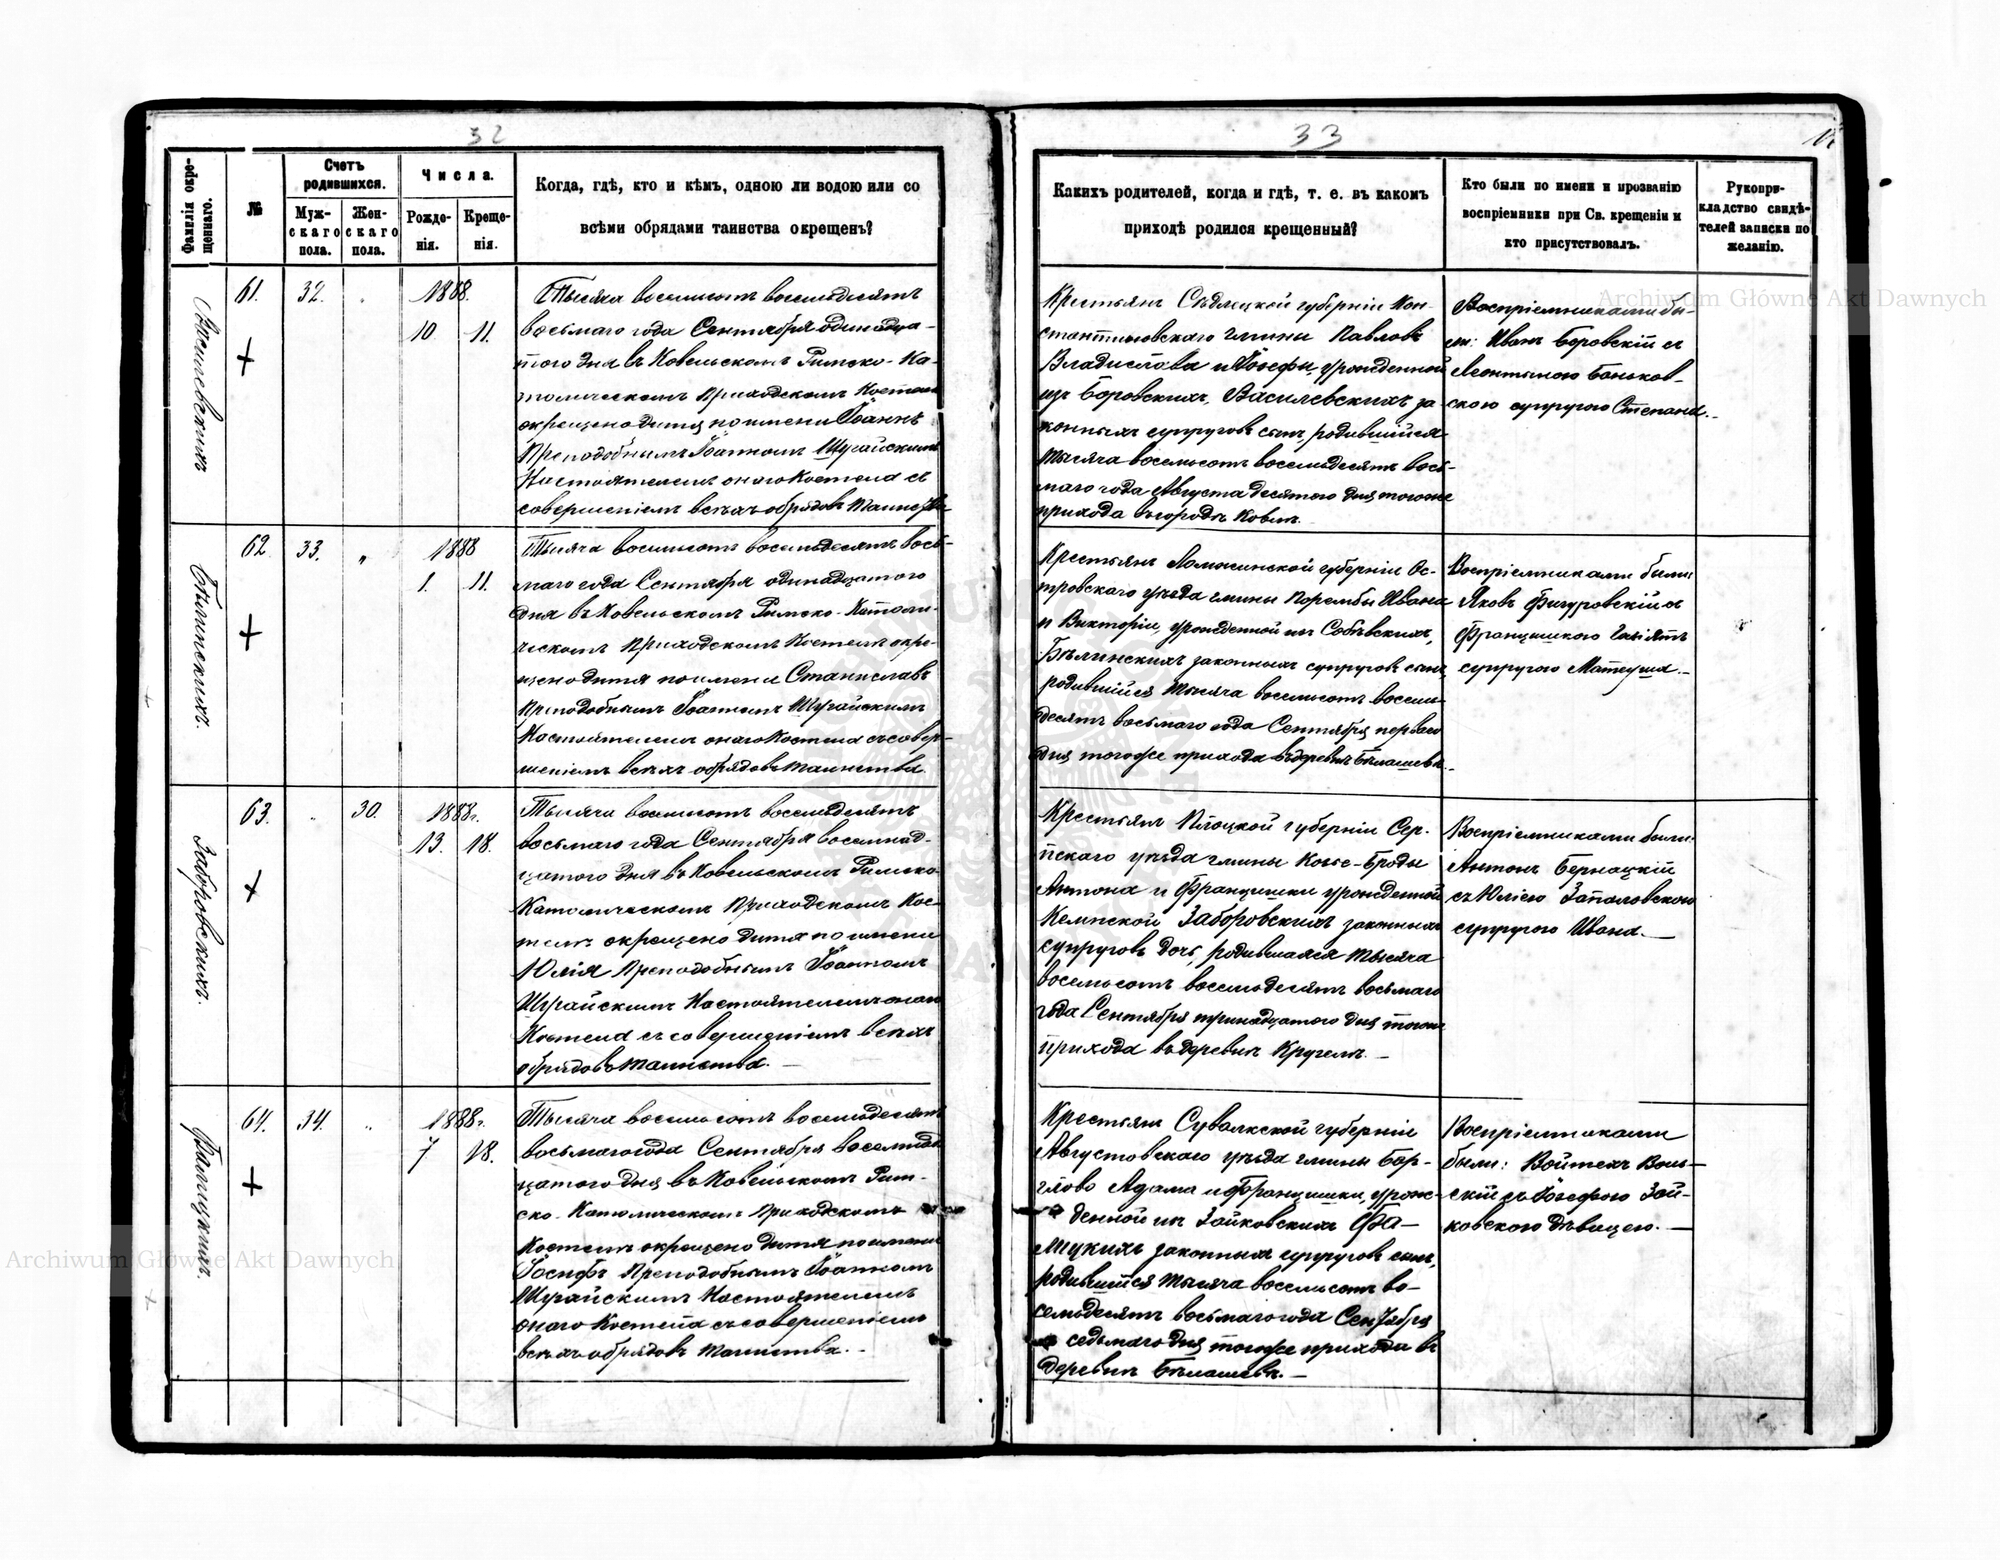 32
Фамилія окре-
щеннаго.
№
Счетъ
родившихся.
Муж-
скаго
пола.
Жен-
скаго
пола.
Числа.
Рожде-
нія.
Креще-
нія.
Когда, гдѣ, кто и кѣмъ, одною ли водою или со
всѣми обрядами таинства окрещенъ?
Василевскихъ
61.
32.
1888.
10. 11.
Тысяча восемьсотъ восемьдесятъ
восьмаго года Сентября одинадца-
таго дня въ Ковельскомъ Римско-Ка-
толическомъ Приходскомъ Костелѣ
окрещено дитя по имени Іоаннъ
Преподобнымъ Іоанномъ Шурайскимъ
Настоятелемъ онаго Костела съ
совершеніемъ всѣхъ обрядовъ Таинства
Бѣлинскихъ.
62
33.
„
1888
1. 11.
Тысяча восемьсотъ восемьдесятъ вось-
маго года Сентября одинадцатого
дня въ Ковельскомъ Римско-Католи-
ческомъ Приходскомъ Костелѣ окре-
щено дитя по имени Станиславъ
Преподобнымъ Іоанномъ Шурайскимъ
Настоятелемъ онаго Костела съ совер-
шеніемъ всѣхъ обрядовъ таинства.
Заборовскихъ.
63.
„
30.
1888г.
13. 18.
Тысяча восемьсотъ восемьдесятъ
восьмаго года Сентября восемнад-
цатого дня въ Ковельскомъ Римско
Католическомъ Приходскомъ Кос-
телѣ окрещено дитя по имени
Юлія Преподобнымъ Іоанномъ
Шурайскимъ Настоятелемъ онаго
Костела съ совершеніемъ всѣхъ
обрядовъ таинства. —
64.
34.
„
1888г.
7 18.
Тысяча восемьсотъ восемьдесятъ
восьмаго года Сентября восемнад-
цатого дня въ Ковельскомъ Рим-
ско-Католическомъ Приходскомъ
Костелѣ окрещено дитя по имени
Іосифъ Преподобнымъ Іоанномъ
Шурайскимъ Настоятелемъ
онаго Костела съ совершеніемъ
всѣхъ обрядовъ таинства. —
33
Какихъ родителей, когда и гдѣ, т. е. въ какомъ
приходѣ родился крещенный?
Кто были по имени и прозванію
воспріемники при Св. крещеніи и
кто присутствовалъ.
Рукопри-
кладство свидѣ-
телей записки по
желанію.
Крестьянъ Сѣдлецкой губерніи Кон-
стантиновскаго гмины Павловъ
Владислава и Іозефы, урожденной
изъ Боровскихъ, Василевскихъ за-
конныхъ супруговъ сынъ, родившійся
тысяча восемьсотъ восемьдесятъ вось-
маго года Августа десятого дня тогоже
прихода въ городѣ Ковлѣ.
Воспріемниками бы-
ли: Иванъ Боровскій съ
Леонтыною Баньков-
скою супругою Степана. -
Крестьянъ Ломжинской губерніи Ос-
тровскаго уѣзда гмины Порембы Ивана
и Викторіи, урожденной изъ Собѣвскихъ,
Бѣлинскихъ законныхъ супруговъ сынъ,
родившійся тысяча восемьсотъ восемь-
десятъ восьмаго года Сентября перваго
дня тогоже прихода въ деревнѣ Бѣлашевѣ.
Воспріемниками были
Яковъ Фигуровскій съ
Францишкою
супругою Матеуша. -
Крестьянъ Плоцкой губерніи Сер-
пскаго уѣзда гмины Косе-Броды
Антона и Францишки урожденной
Кемпской Заборовскихъ законныхъ
супруговъ дочь, родившаяся тысяча
восемьсотъ восемьдесятъ восьмаго
года Сентября тринадцатого дня тогоже
прихода въ деревнѣ Кругелѣ. —
Воспріемниками были
Антонъ Бернацкій
съ Юліею Заполовскою
супругою Ивана. —
Крестьянъ Сувалкской губерніи
Августовскаго уѣзда гмины Бар-
глово Адама и Францишки, урож-
денной изъ Зайковскихъ Фа-
лицкихъ законныхъ супруговъ сынъ,
родившійся тысяча восемьсотъ во-
семьдесятъ восьмаго года Сентября
седьмаго дня тогоже прихода въ
деревнѣ Бѣлашевѣ. —
Воспріемниками
были: Войтехъ Воль-
скій съ Іозефою Зай-
ковскою дѣвицею. —
Archiwum Główne Akt Dawnych
Archiwum Główne Akt Dawnych